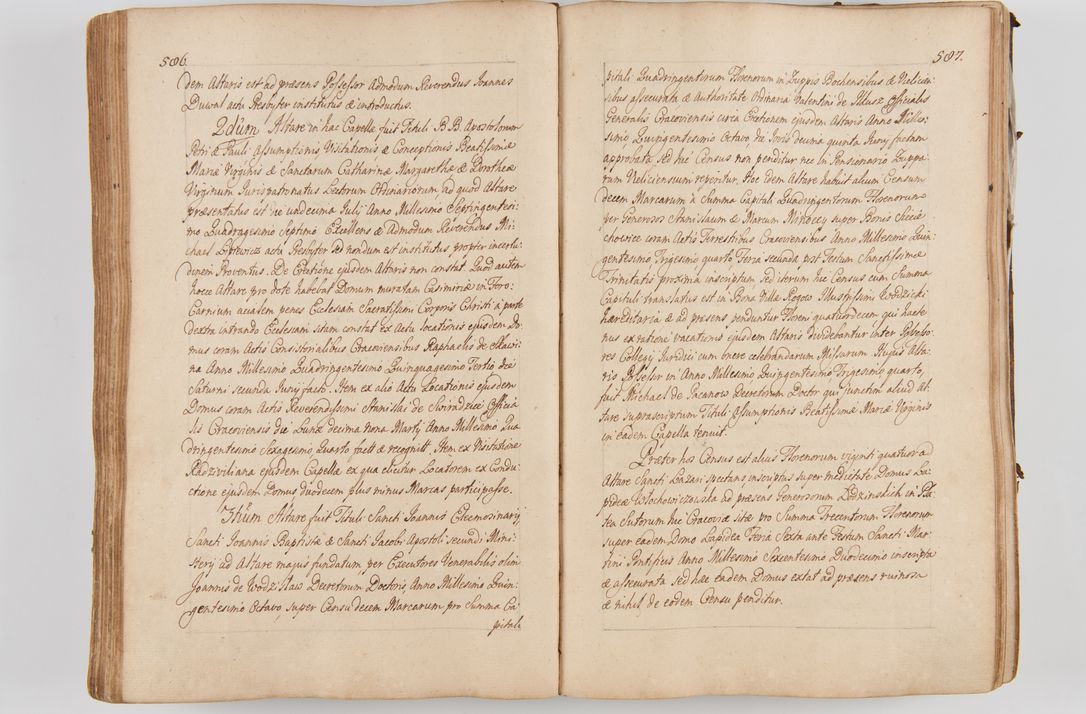 506.
dem Altaris est ad præsens Possessor Admodum Reverendus Joannes
Duwal actu Presbyter institutus & introductus.
2dum Altare in hac Capella fuit Tituli B.B. Apostolorum
Petri & Pauli Assumptionis, Visitationis & Conceptionis Beatissimæ
Mariæ Virginis & Sanctarum Catharinæ Margarethæ & Dorotheæ
Virginum Jurispatronatus Lectorum Ordinariorum ad quod Altare
præsentatus est die undecima Julij Anno Millesimo Septingentesi:
mo Quadragesimo Septimo Excellens & Admodum Reverendus Mi:
chael Lipiewicz actu Presbyter sed nondum est institutus, propter incerti:
dinem Proventus. De Erectione ejusdem Altaris non constat. Quod autem
hocce Altare pro dote habebat Domum muratam Casimiriæ in Foro
Carnium acialem penes Ecclesiam Sacratissimi Corporis Christi à parte
dextra intrando Ecclesiam sitam constat ex Actu locationis ejusdem Do:
mus coram Actis Consistorialibus Cracoviensibus Raphaelis de Skawi:
na Anno Millesimo Quadringentesimo Quinquagesimo Tertio die
Saturni secunda Junij fact. Item ex alio Actu Locationis ejusdem
Domus coram Actis Reverendissimi Stanislai de Swiradzice Officia
lis Cracoviensis die Lunæ decima nona Martij Anno Millesimo Qua
dringentesimo Sexagesimo Quarto factæ & recognitæ. Item ex Visitatione
Radziviliana ejusdem Capellæ ex qua elicitur Locatorem ex Condu:
ctione ejusdem Domus duodecem plus minus Marcas participasse.
3tium Altare fuit Tituli Sancti Joannis Eleemosinarij
Sancti Joannis Baptistæ & Sancti Jacobi Apostoli secundi Mini:
sterij ad Altare majus fundatum per Executores Venerabilis olim
Joannis de Wodzislaw Decretorum Doctoris, Anno Millesimo Quin:
gentesimo Octavo, super Censu decem Marcarum pro Summa Ca
pitali
507.
pitali Quadringentorum Florenorum in Zuppis Bochensibus & Velicien:
sibus assecurata & Authoritate Ordinaria Valentini de Ilkusz Officialis
Generalis Cracoviensis circa Erectionem ejusdem Altaris Anno Mille:
simo, Quingentesimo Octavo, die Jovis decima quinta Junij factam
approbata. Sed hic Census non penditur nec in Pensionario Zuppa:
rum Veliciensium reperitur. Hoc idem Altare habuit alium Censum
decem Marcarum à Summa Capitali Quadringentorum Florenorum
per Generosos Stanislaum & Marcum Niedecy super Bonis Sciecie
chowice coram Actis Terrestribus Cracoviensibus Anno Millesimo Quin:
gentesimo Trigesimo quarto Feria secunda post Festum Sanctissimæ
Trinitatis proxima inscriptum sed iterum hic Census cum Summa
Capituli translatus est in Bona Villa Rogow Illustrissimi Wodzicki
hæreditaria & ad præsens penduntur Floreni quatuordecem qui hacte
nus ex ratione vacationis ejusdem Altaris dividebantur inter Presbite:
res Collegij Juridici cum onere celebrandarum Missarum Hujus Alta:
ris Possessor in Anno Millesimo Quingentesimo Trigesimo quarto,
fuit Michael de Pacanow Decretorum Doctor qui junctim aliud Al
tare suprascriptum Tituli Assumptionis Beatissimæ Mariæ Virginis
in eadem Capella tenuit.
Præter hos Census est alius Florenorum viginti quatuor ad
Altare Sancti Lazari spectans inscriptus super medietate Domus La:
pideæ Wlochowiczowska ad præsens Generosorum Lodzinskich in Pla:
tea Sutorum hic Cracoviæ sitæ pro Summa Trecentorum Florenorum
super eadem Domo Lapidea Feria Sexta ante Festum Sancti Mar:
tini Pontificis Anno Millesimo Sexcentesimo Duodecimo inscripta
& assecurata sed hæc eadem Domus extat ad præsens ruinosa
& nihil de eodem Censu penditur.